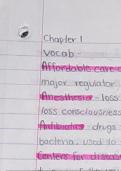 Chapter 1
Vocab -
Affordable care
major regulator
Anesthesia - loss
loss consciousness
Antibiotics - drugs
bacteria, used to
Centers for disease